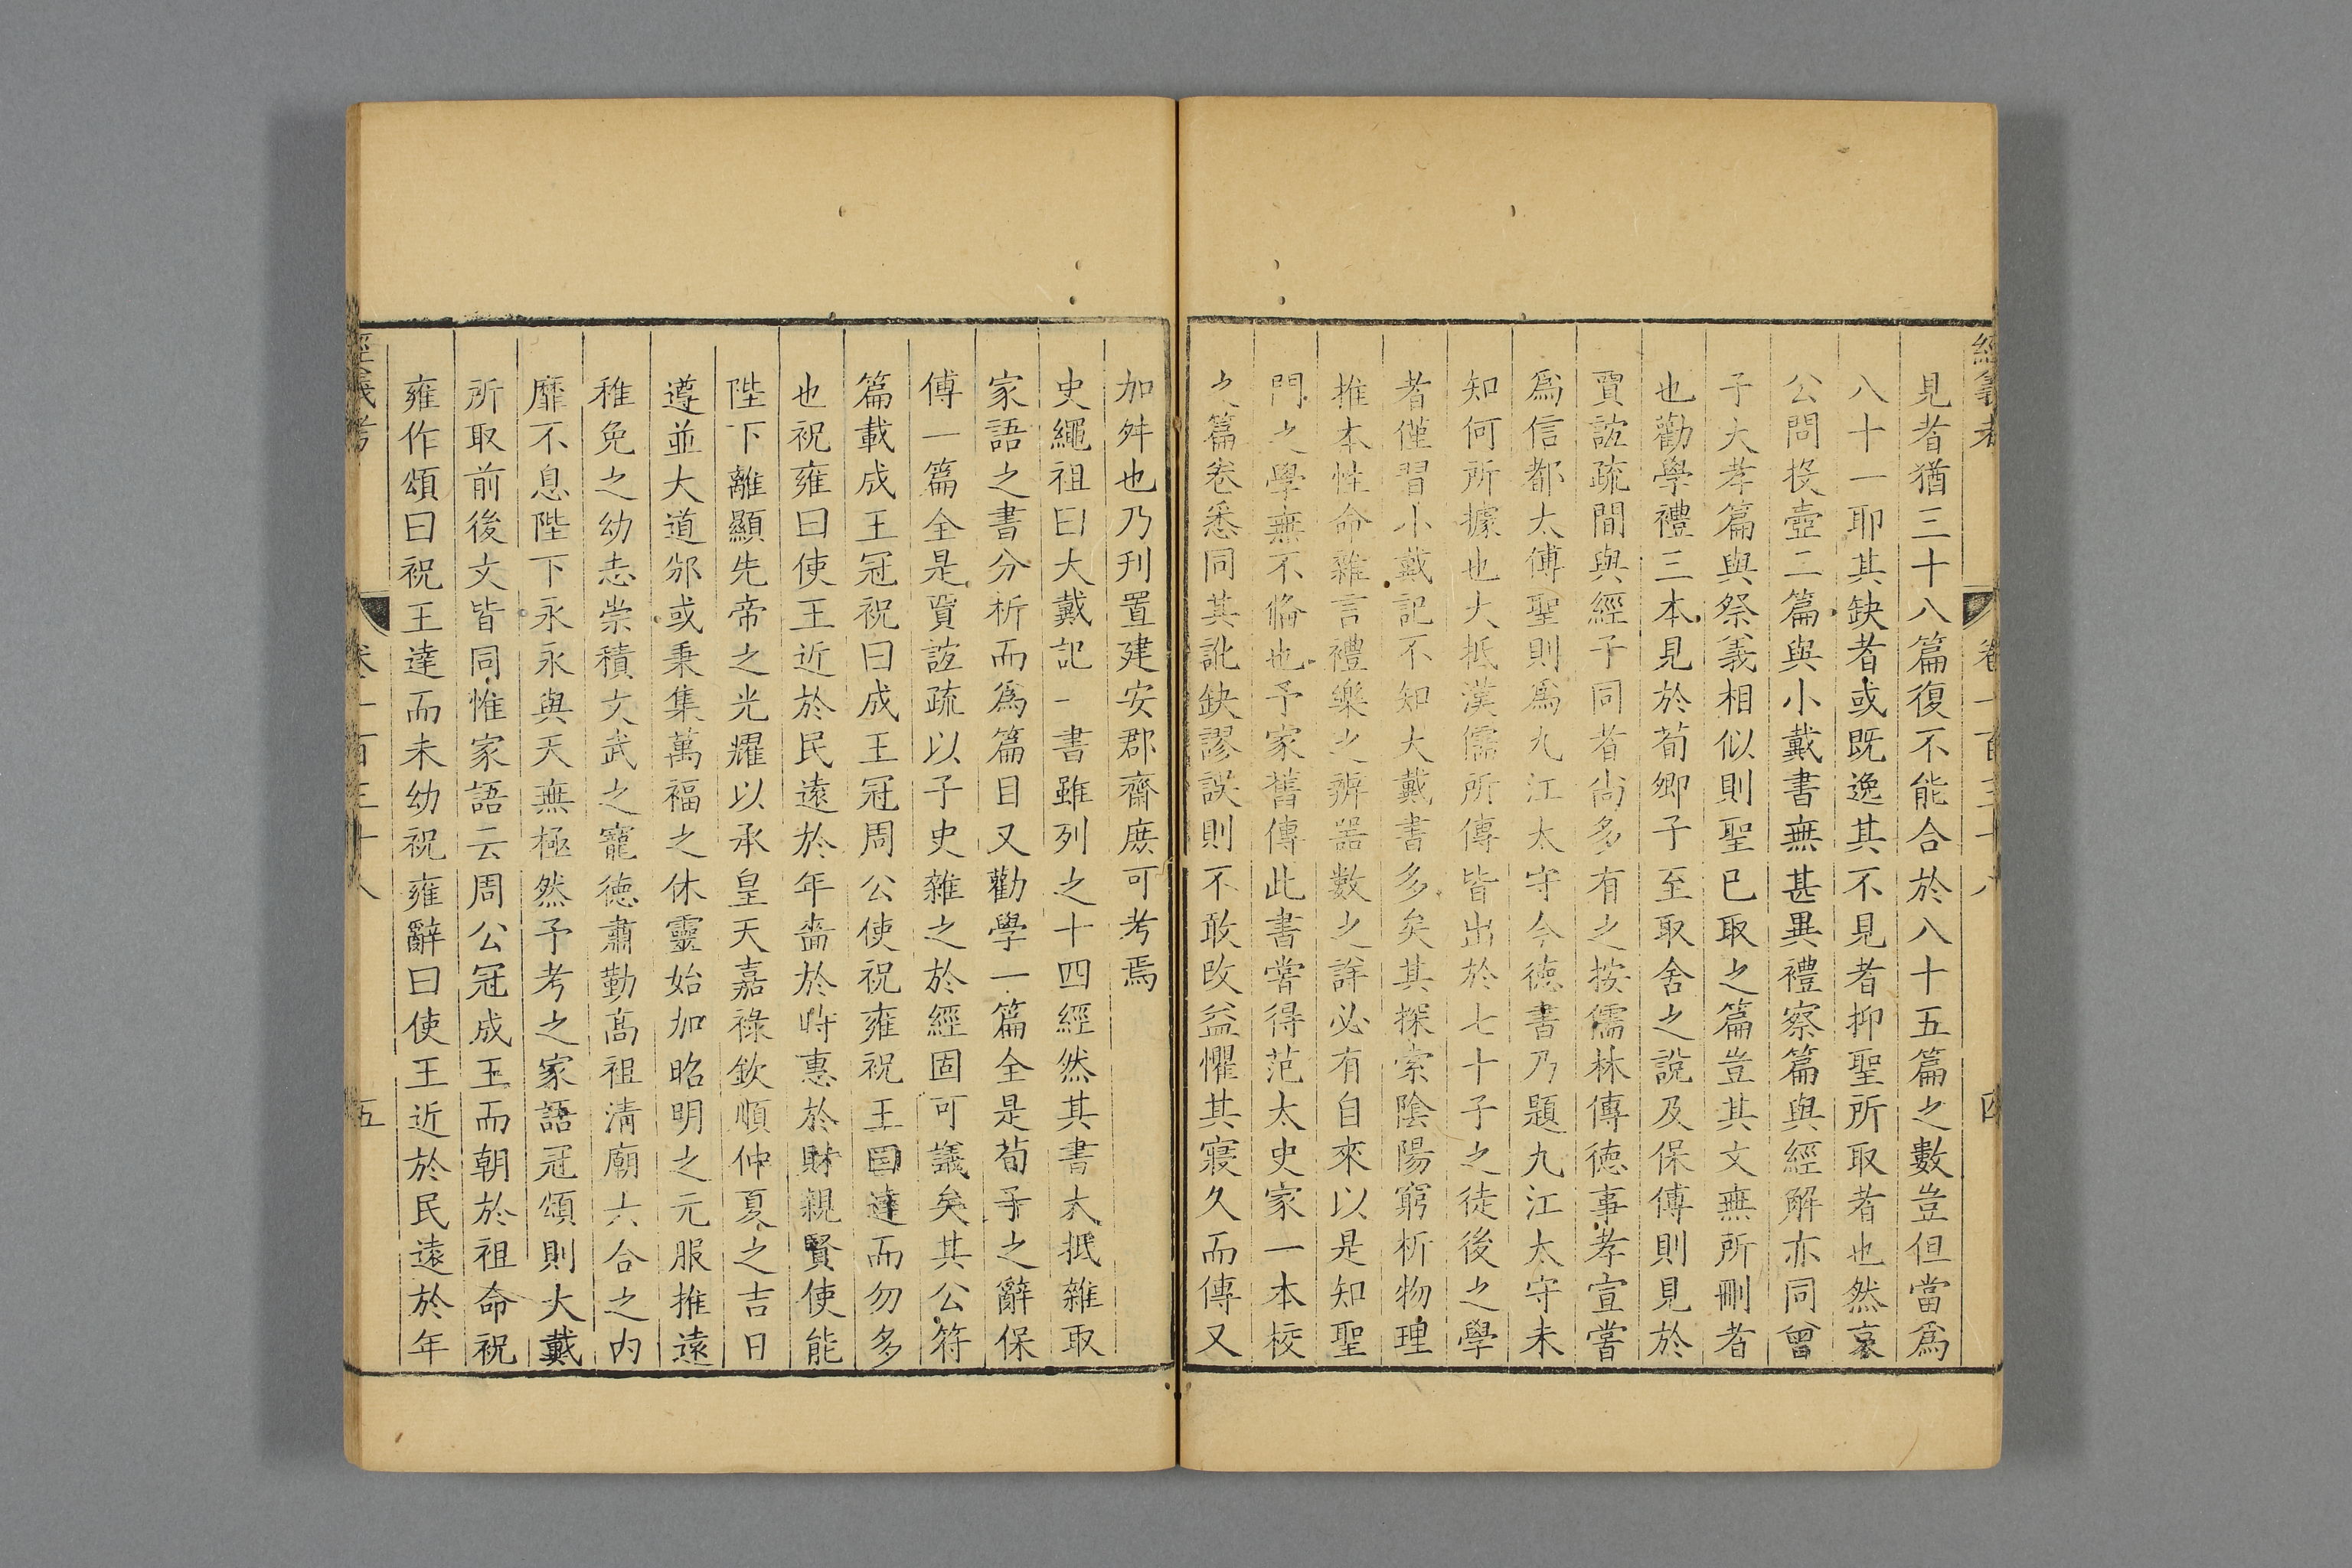 經義考 卷一百三十八 四
見者猶三十八篇復不能合於八十五篇之數豈但當爲
八十一耶其缺者或既逸其不見者抑聖所取者也然哀
公問投壺二篇與小戴書無甚異禮察篇與經解亦同曾
子大孝篇與祭義相似則聖已取之篇豈其文無所刪者
也勸學禮三本見於荀卿子至取舍之說及保傅則見於
賈誼疏間與經子同者尚多有之按儒林傳德事孝宣嘗
爲信都太傅聖則爲九江太守今德書乃題九江太守未
知何所據也大抵漢儒所傳皆出於七十子之徒後之學
者僅習小戴記不知大戴書多矣其探索陰陽窮析物理
推本性命雜言禮樂之辨器數之詳必有自來以是知聖
門之學無不備也予家舊傳此書嘗得范太史家一本校
之篇卷悉同其訛缺謬誤則不敢改益懼其寖久而傳又
加舛也乃刊置建安郡齋庶可考焉
史繩祖曰大戴記一書雖列之十四經然其書大抵雜取
家語之書分析而爲篇目又勸學一篇全是荀子之辭保
傅一篇全是賈誼疏以子史雜之於經固可議矣其公符
篇載成王冠祝曰成王冠周公使祝雍祝王曰達而勿多
也祝雍曰使王近於民遠於年嗇於時惠於財親賢使能
陛下離顯先帝之光耀以承皇天嘉祿欽順仲夏之吉日
遵並大道邠或秉集萬福之休靈始加昭明之元服推遠
稚免之幼志崇積文武之寵德肅勤高祖清廟六合之內
靡不息陛下永永與天無極然予考之家語冠頌則大戴
所取前後文皆同惟家語云周公冠成王而朝於祖命祝
雍作頌曰祝王達而未幼祝雍辭曰使王近於民遠於年
經義考 卷一百三十八 五